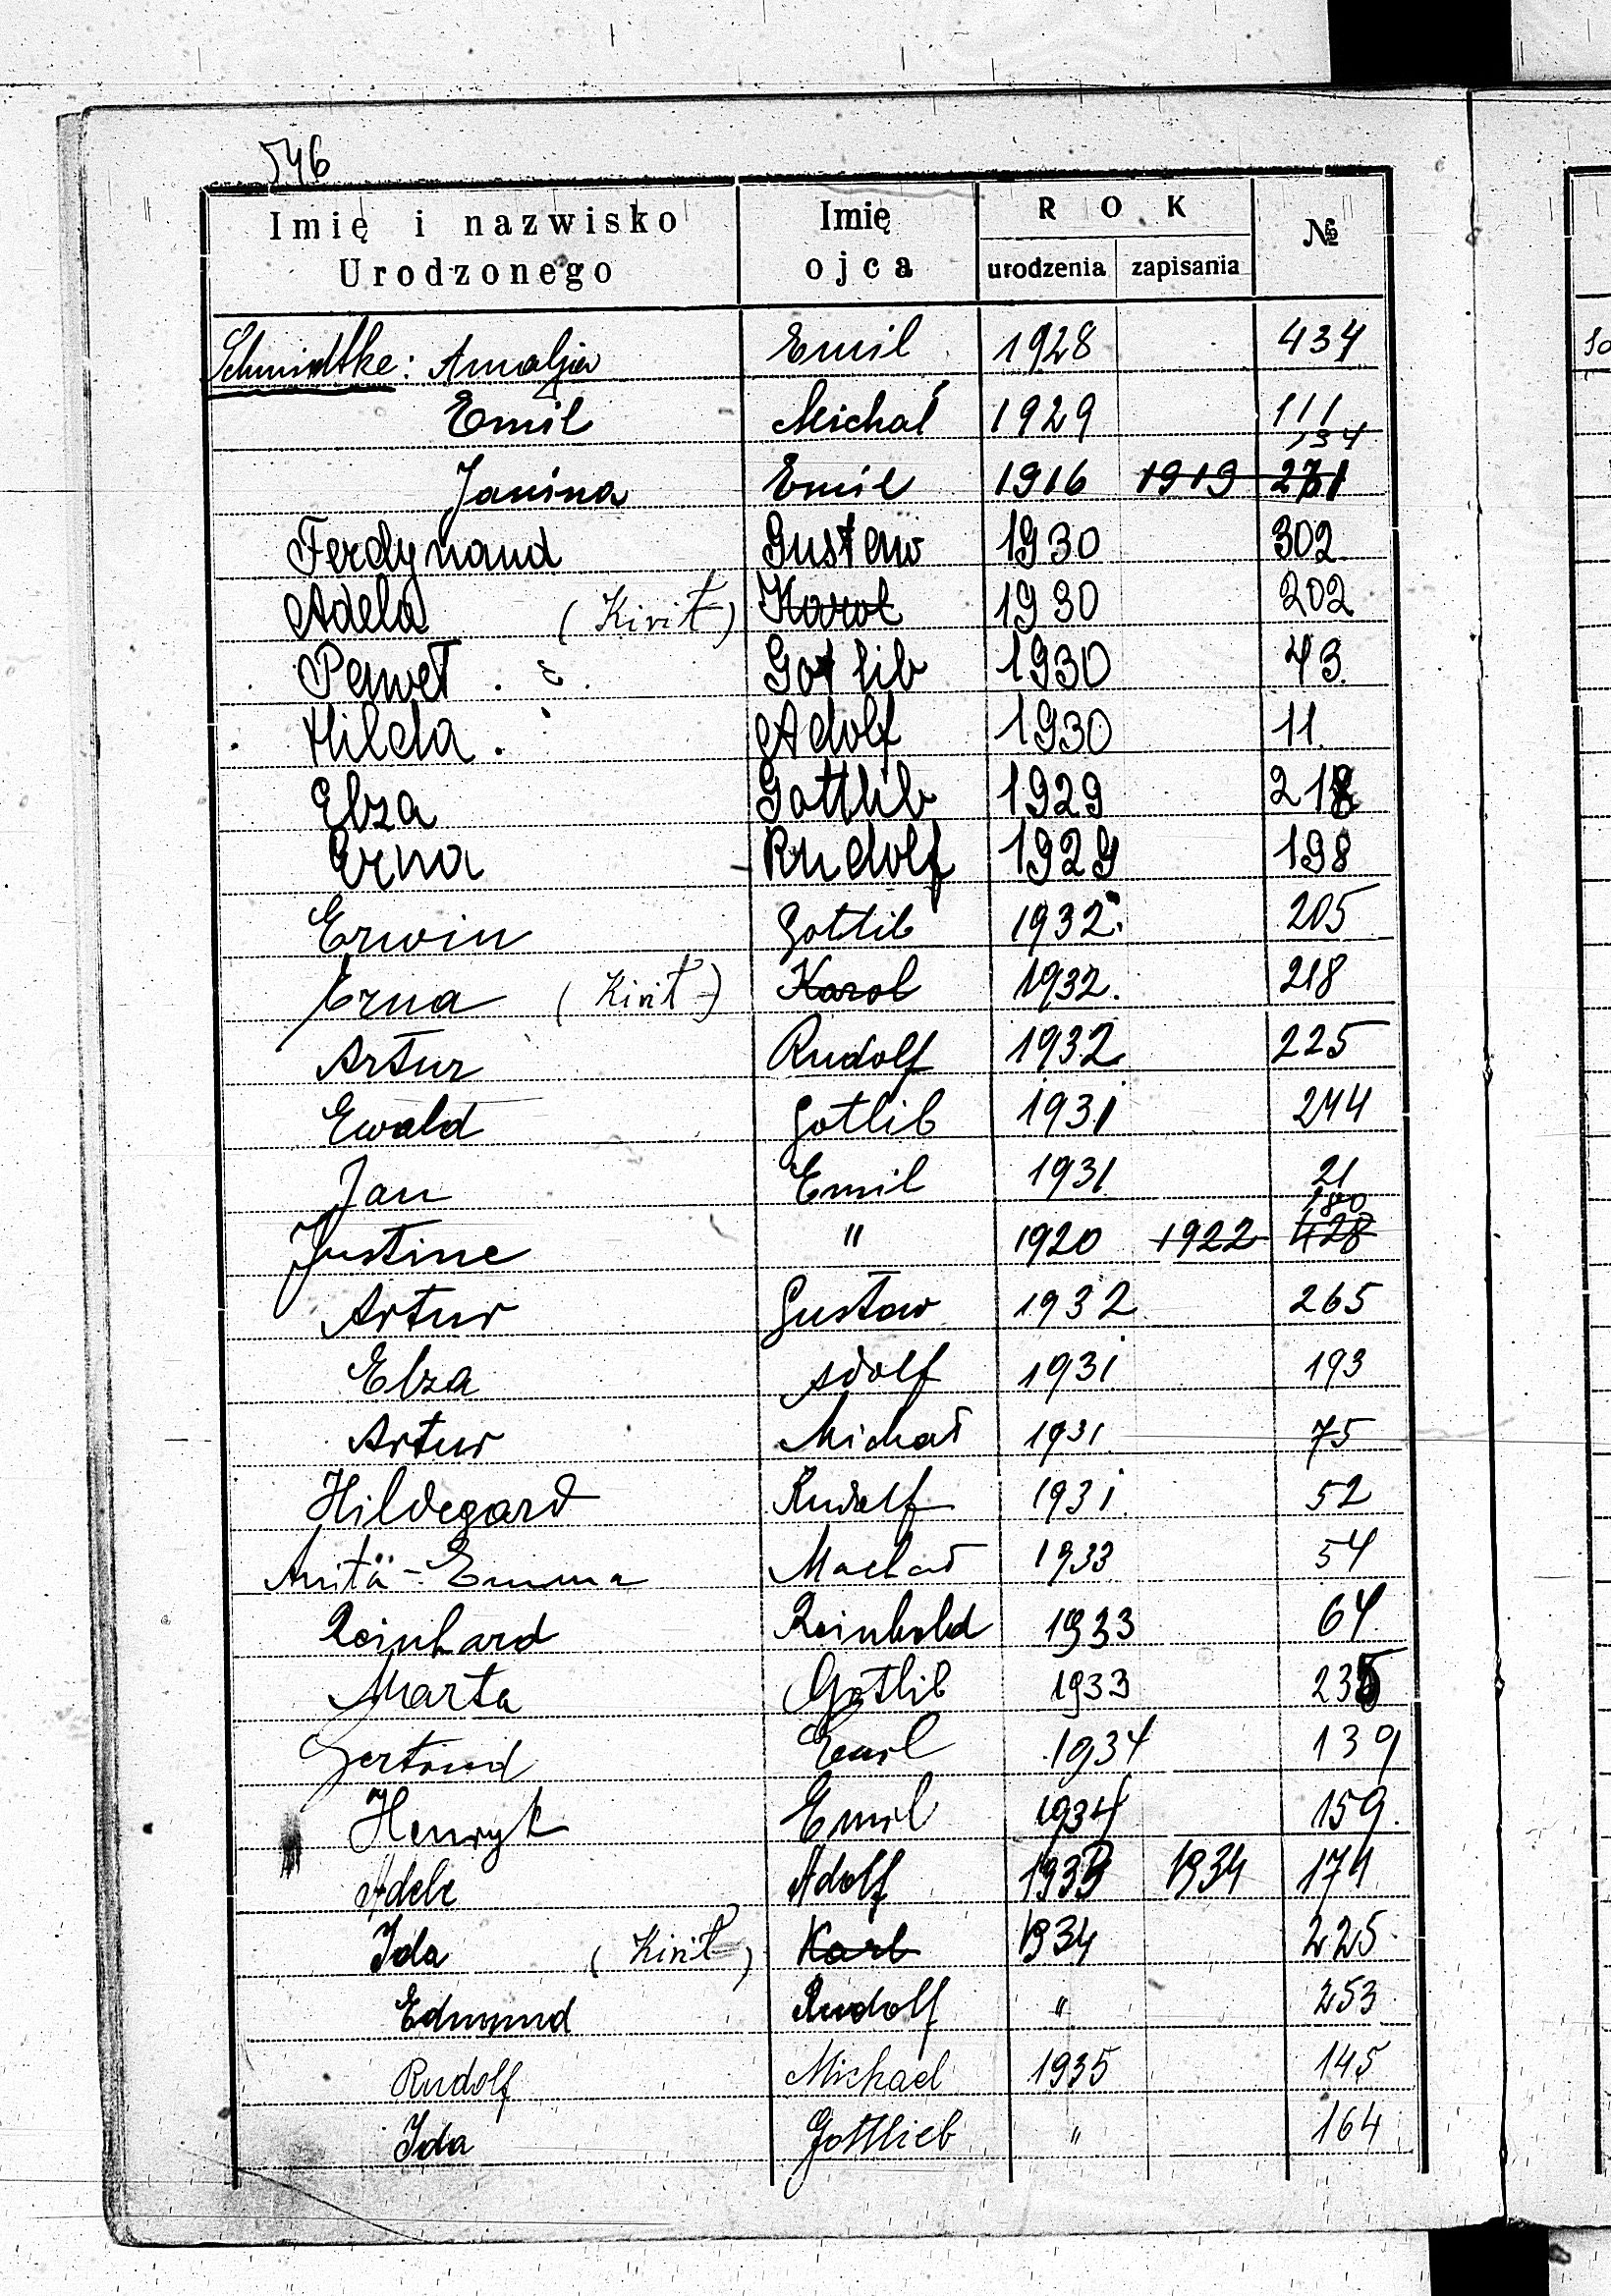 546
Imię i nazwisko Urodzonego | Imię ojca | ROK urodzenia | ROK zapisania | №
Schmidtke: Amalja Emil 1928 434
Emil Michał 1929 111
134
Janina Emil 1916 1919 271
Ferdynand Gustaw 1930 302
Adela (Kirit) Karol 1930 202
Paweł Gotlib 1930 43
Hilda Adolf 1930 11
Elza Gottlib 1929 218
Erna Rudolf 1929 198
Erwin Gotlib 1932 205
Erna (Kirit) Karol 1932. 218
Artur Rudolf 1932 225
Ewald Gotlib 1931 244
Jan Emil 1931 21
180
Justine " 1920 1922 428
Artur Gustaw 1932 265
Elza Adolf 1931 193
Artur Michał 1931 75
Hildegard Rudolf 1931 52
Anita-Emma 1933 54
Reinhard Reinhold 1933 64
Marta Gotlib 1933 235
Gertrud Emil 1934 139
Henryk Emil 1934 159.
Adele Adolf 1933 1934 174
Ida (Kirit) Karl 1934 225
Edmund Rudolf " 253
Rudolf Michael 1935 145
Ida Gottlieb " 164